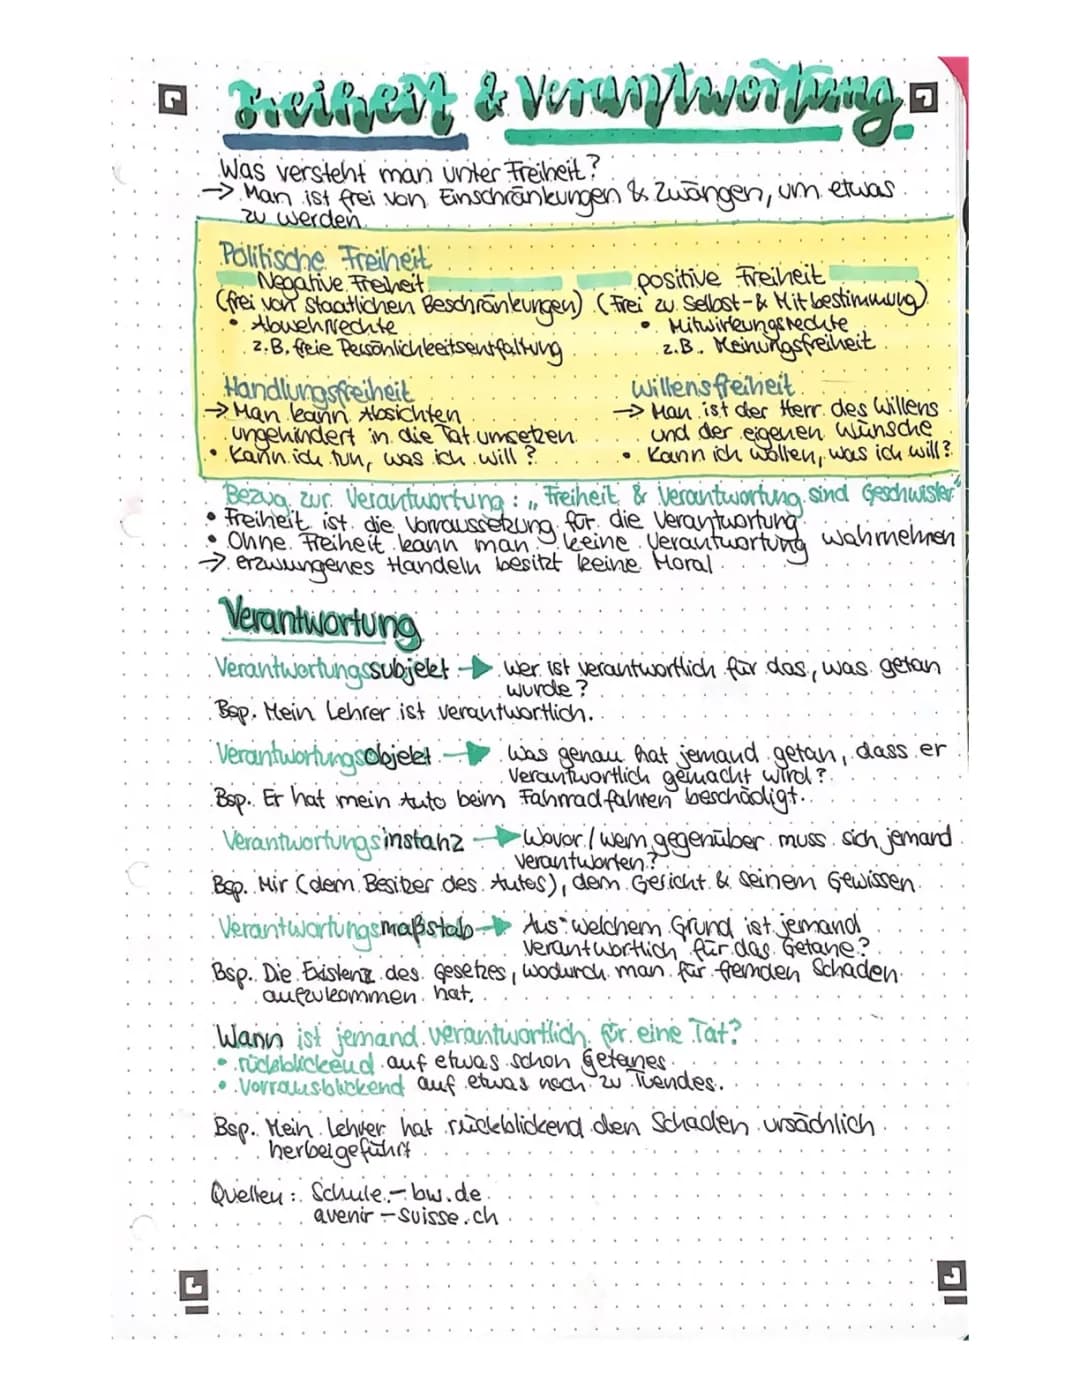 Freiheit & Verantwortung
Was versteht man unter Freiheit?
→ Man ist frei von Einschränkungen & Zwängen, um etwas
zu werden.
Politische Freiheit
Negative Freiheit
positive Freiheit
(frei von staatlichen Beschränkungen)
(Frei zu Selbst- & Mitbestimmung)
• Abwehrrechte
• Mitwirkungsrechte
z.B. freie Persönlichkeitsentfaltung
z.B. Meinungsfreiheit
Handlungsfreiheit
→ Man kann Absichten
ungehindert in die Tat umsetzen
• Kann ich tun, was ich will?
Willensfreiheit
→ Man ist der Herr des Willens
und der eigenen Wünsche
• Kann ich wollen, was ich will?
Bezug zur Verantwortung: „Freiheit & Verantwortung sind Geschwister“
• Freiheit ist die Vorraussetzung für die Verantwortung
• Ohne Freiheit kann man keine Verantwortung wahrnehmen
→ erzwungenes Handeln besitzt keine Moral
Verantwortung
Verantwortungssubjekt → wer ist verantwortlich für das, was getan
wurde?
Bsp. Mein Lehrer ist verantwortlich.
Verantwortungsobjekt → Was genau hat jemand getan, dass er
verantwortlich gemacht wird?
Bsp. Er hat mein Auto beim Fahrradfahren beschädigt.
Verantwortungsinstanz → Wovor / wem gegenüber muss sich jemand
verantworten?
Bsp. Mir (dem Besitzer des Autos), dem Gericht & seinem Gewissen
Verantwortungsmaßstab → Aus welchem Grund ist jemand
verantwortlich für das Getane?
Bsp. Die Existenz des Gesetzes, wodurch man für fremden Schaden
aufzukommen hat.
Wann ist jemand verantwortlich für eine Tat?
• rückblickend auf etwas schon Getanes
• Vorrausblickend auf etwas noch zu Tuendes.
Bsp. Mein Lehrer hat rückblickend den Schaden ursächlich
herbeigeführt
Quellen: Schule-bw.de
avenir-suisse.ch